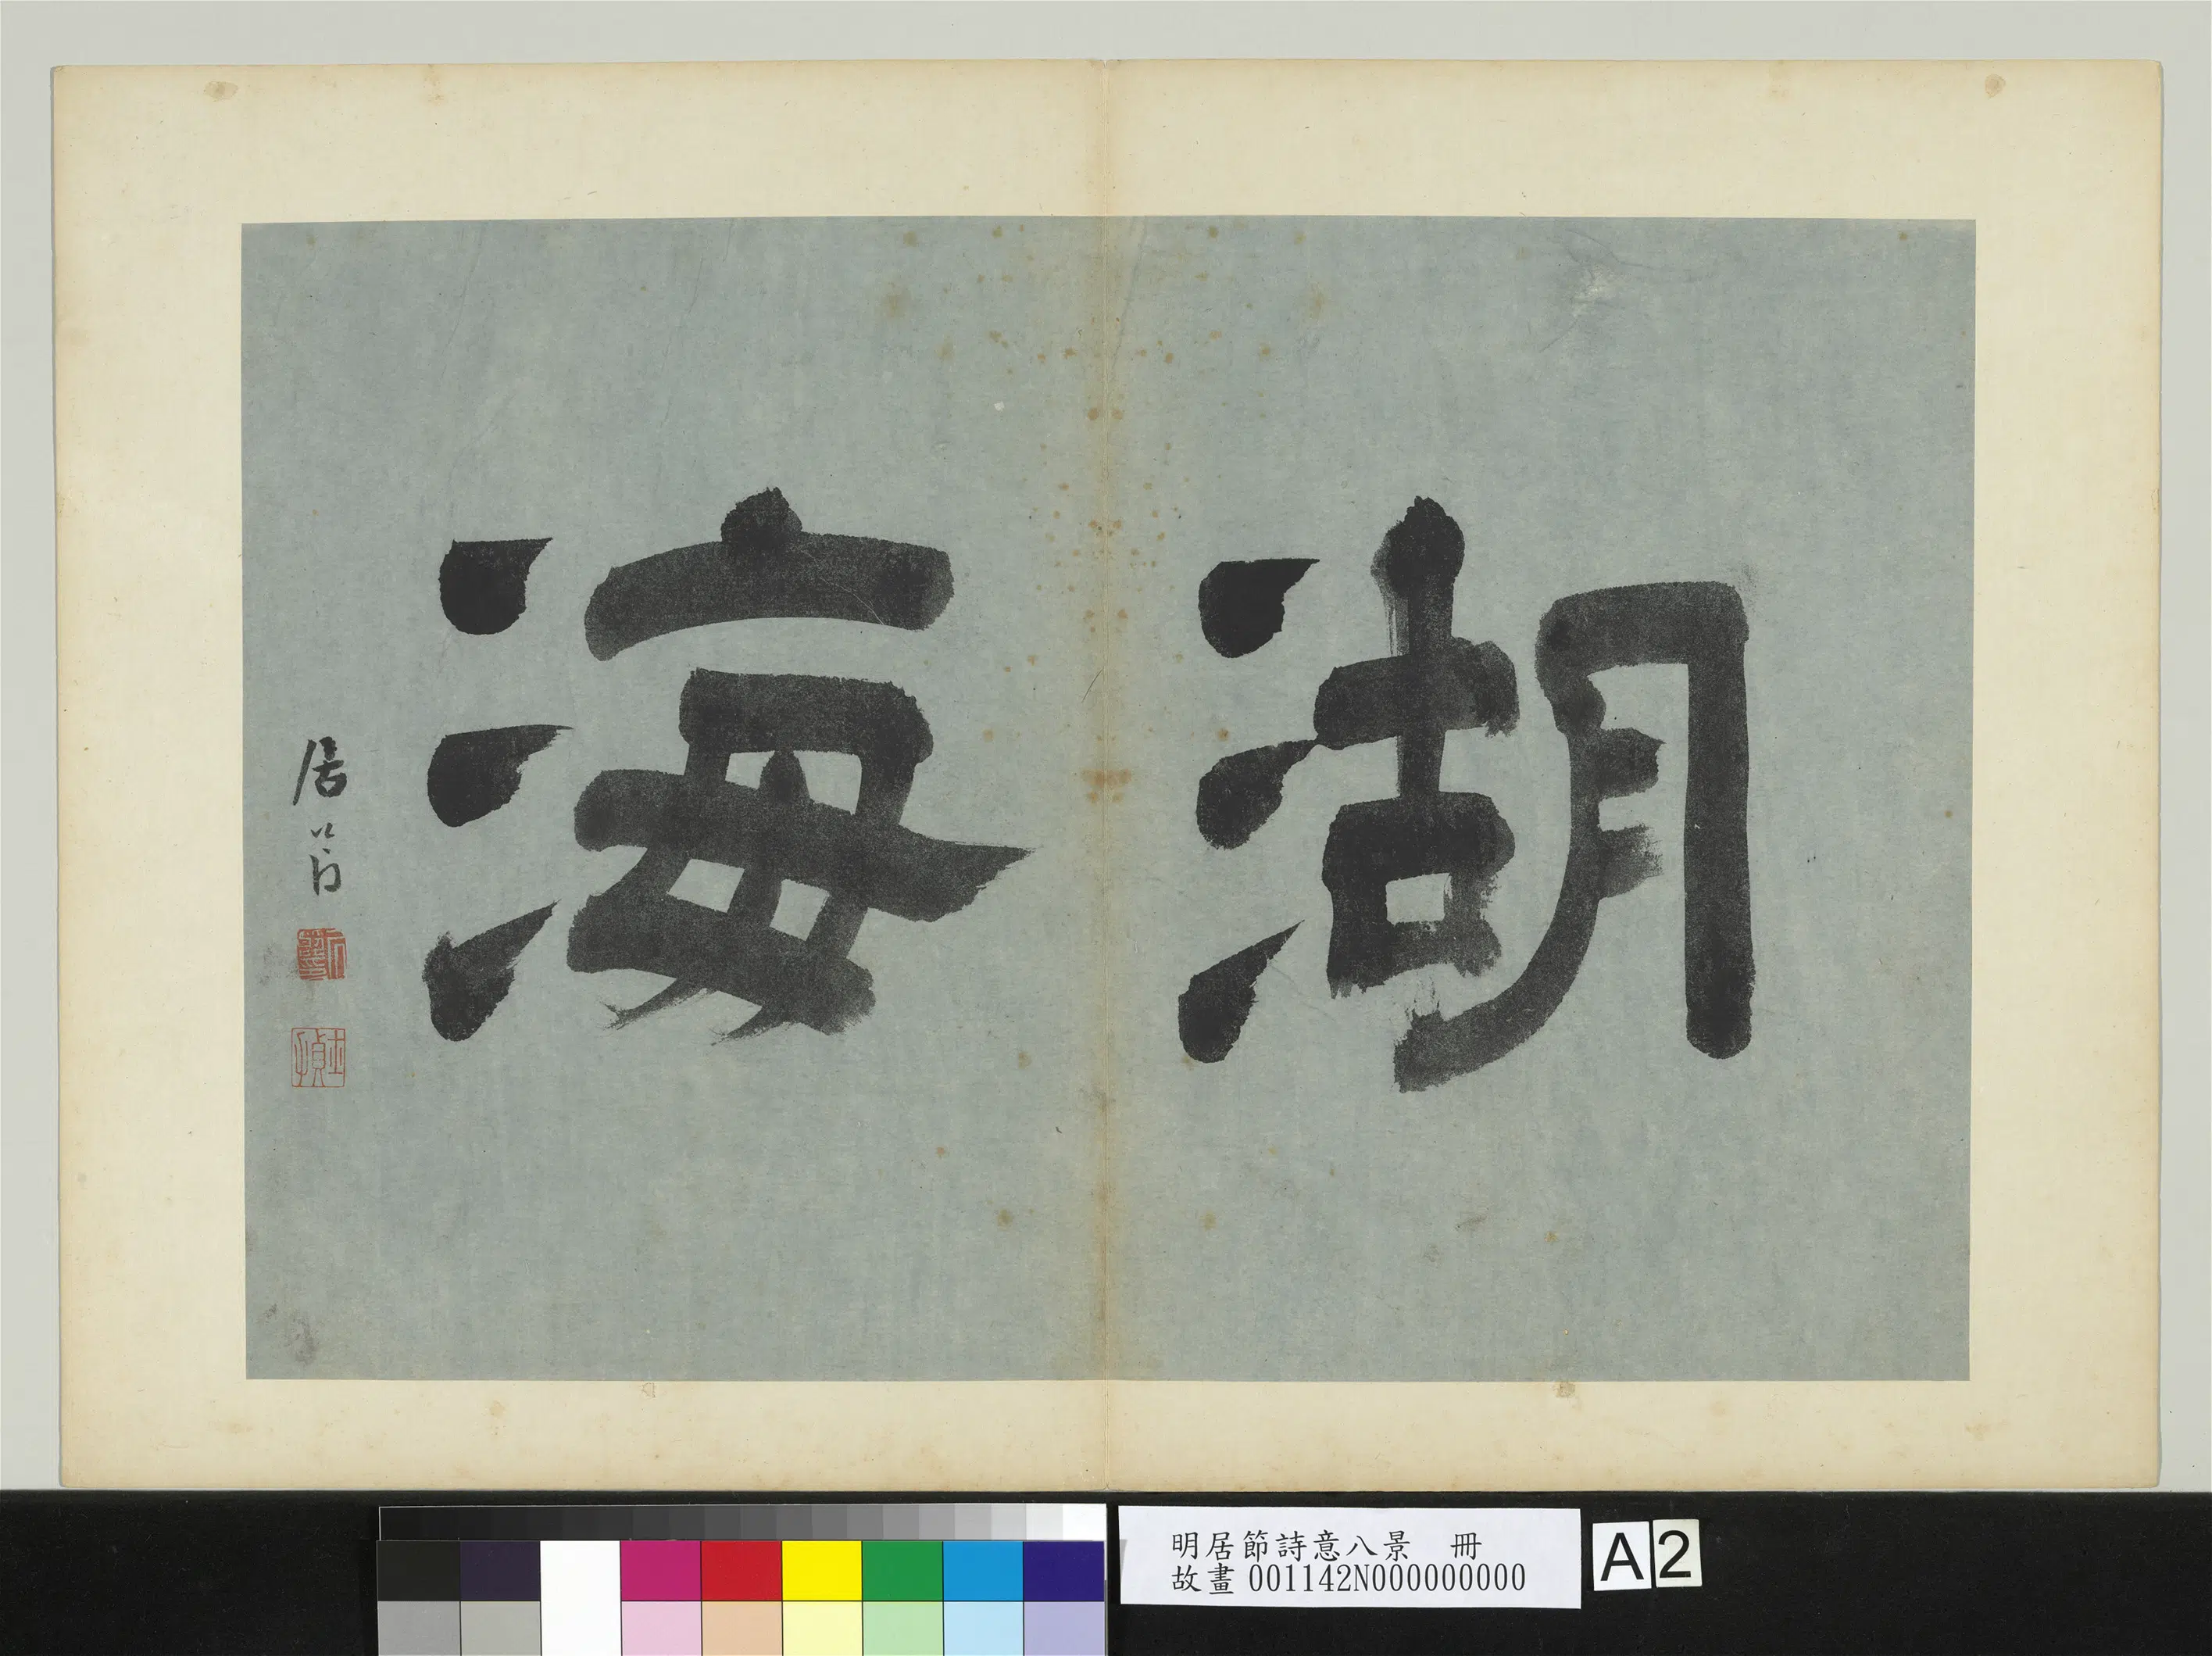 湖海
居節
士貞
明居節詩意八景 冊
故畫001142N000000000
A2